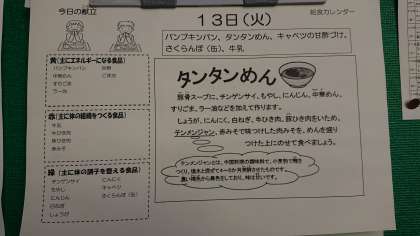 今日の献立
給食カレンダー
13日(火)
パンプキンパン、タンタンめん、キャベツの甘酢づけ、
さくらんぼ(缶)、牛乳
黄(主にエネルギーになる食品)
パンプキンパン
中華めん
すりごま
ラー油
砂糖
ごま油
赤(主に体の組織をつくる食品)
牛乳
牛ひき肉
豚ひき肉
赤みそ
緑(主に体の調子を整える食品)
チンゲンサイ にんにく
もやし キャベツ
にんじん さくらんぼ(缶)
白ねぎ
しょうが
タンタンめん
豚骨スープに、チンゲンサイ、もやし、にんじん、中華めん、
すりごま、ラー油などを加えて作ります。
しょうが、にんにく、白ねぎ、牛ひき肉、豚ひき肉をいため、
テンメンジャン、赤みそで味つけした肉みそを、めんを盛り
つけた上にのせて食べましょう。
テンメンジャンとは、中国料理の調味料で、小麦粉で麹を
つくり、塩水と混ぜて4~6か月発酵させたものです。
濃い褐色から黒色をしており、味は甘いです。